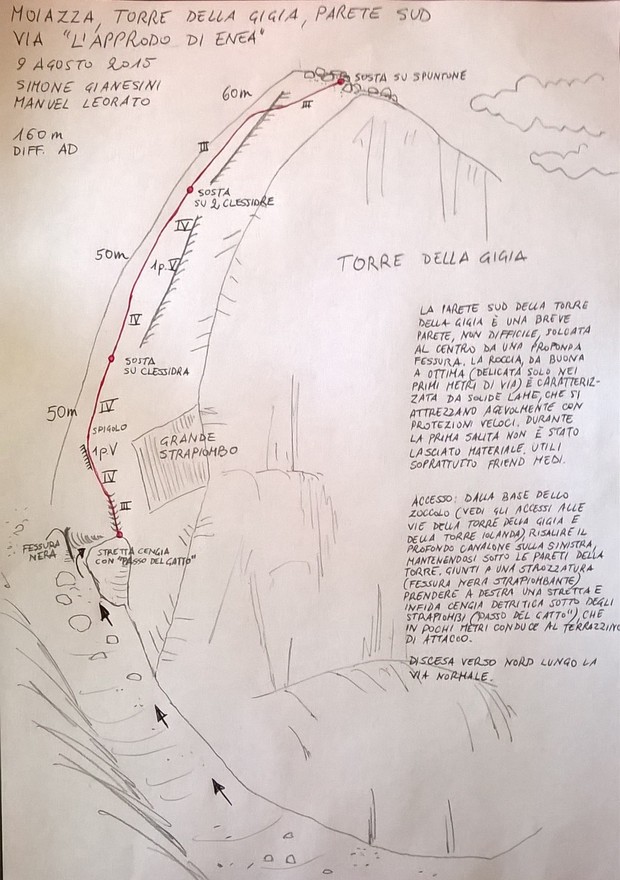 MOIAZZA, TORRE DELLA GIGIA, PARETE SUD
VIA "L'APPRODO DI ENEA"
9 AGOSTO 2015
SIMONE GIANESINI
MANUEL LEORATO
160 m
DIFF. AD
SOSTA SU SPUNTONE
60m
III
III
SOSTA
SU 2 CLESSIDRE
IV
50m
1p.V
IV
SOSTA
SU CLESSIDRA
50m
IV
SPIGOLO
1p.V
IV
III
GRANDE
STRAPIOMBO
FESSURA
NERA
STRETTA CENGIA
CON "PASSO DEL GATTO"
TORRE DELLA GIGIA
LA PARETE SUD DELLA TORRE
DELLA GIGIA È UNA BREVE
PARETE, NON DIFFICILE, SOLCATA
AL CENTRO DA UNA PROFONDA
FESSURA. LA ROCCIA, DA BUONA
A OTTIMA (DELICATA SOLO NEI
PRIMI METRI DI VIA) È CARATTERIZ-
ZATA DA SOLIDE LAME, CHE SI
ATTREZZANO AGEVOLMENTE CON
PROTEZIONI VELOCI. DURANTE
LA PRIMA SALITA NON È STATO
LASCIATO MATERIALE. UTILI
SOPRATTUTTO FRIEND MEDI.
ACCESSO: DALLA BASE DELLO
ZOCCOLO (VEDI GLI ACCESSI ALLE
VIE DELLA TORRE DELLA GIGIA E
DELLA TORRE JOLANDA), RISALIRE IL
PROFONDO CANALONE SULLA SINISTRA,
MANTENENDOSI SOTTO LE PARETI DELLA
TORRE. GIUNTI A UNA STROZZATURA
(FESSURA NERA STRAPIOMBANTE)
PRENDERE A DESTRA UNA STRETTA E
INFIDA CENGIA DETRITICA SOTTO DEGLI
STRAPIOMBI ("PASSO DEL GATTO"), CHE
IN POCHI METRI CONDUCE AL TERRAZZINO
DI ATTACCO.
DISCESA VERSO NORD LUNGO LA
VIA NORMALE.